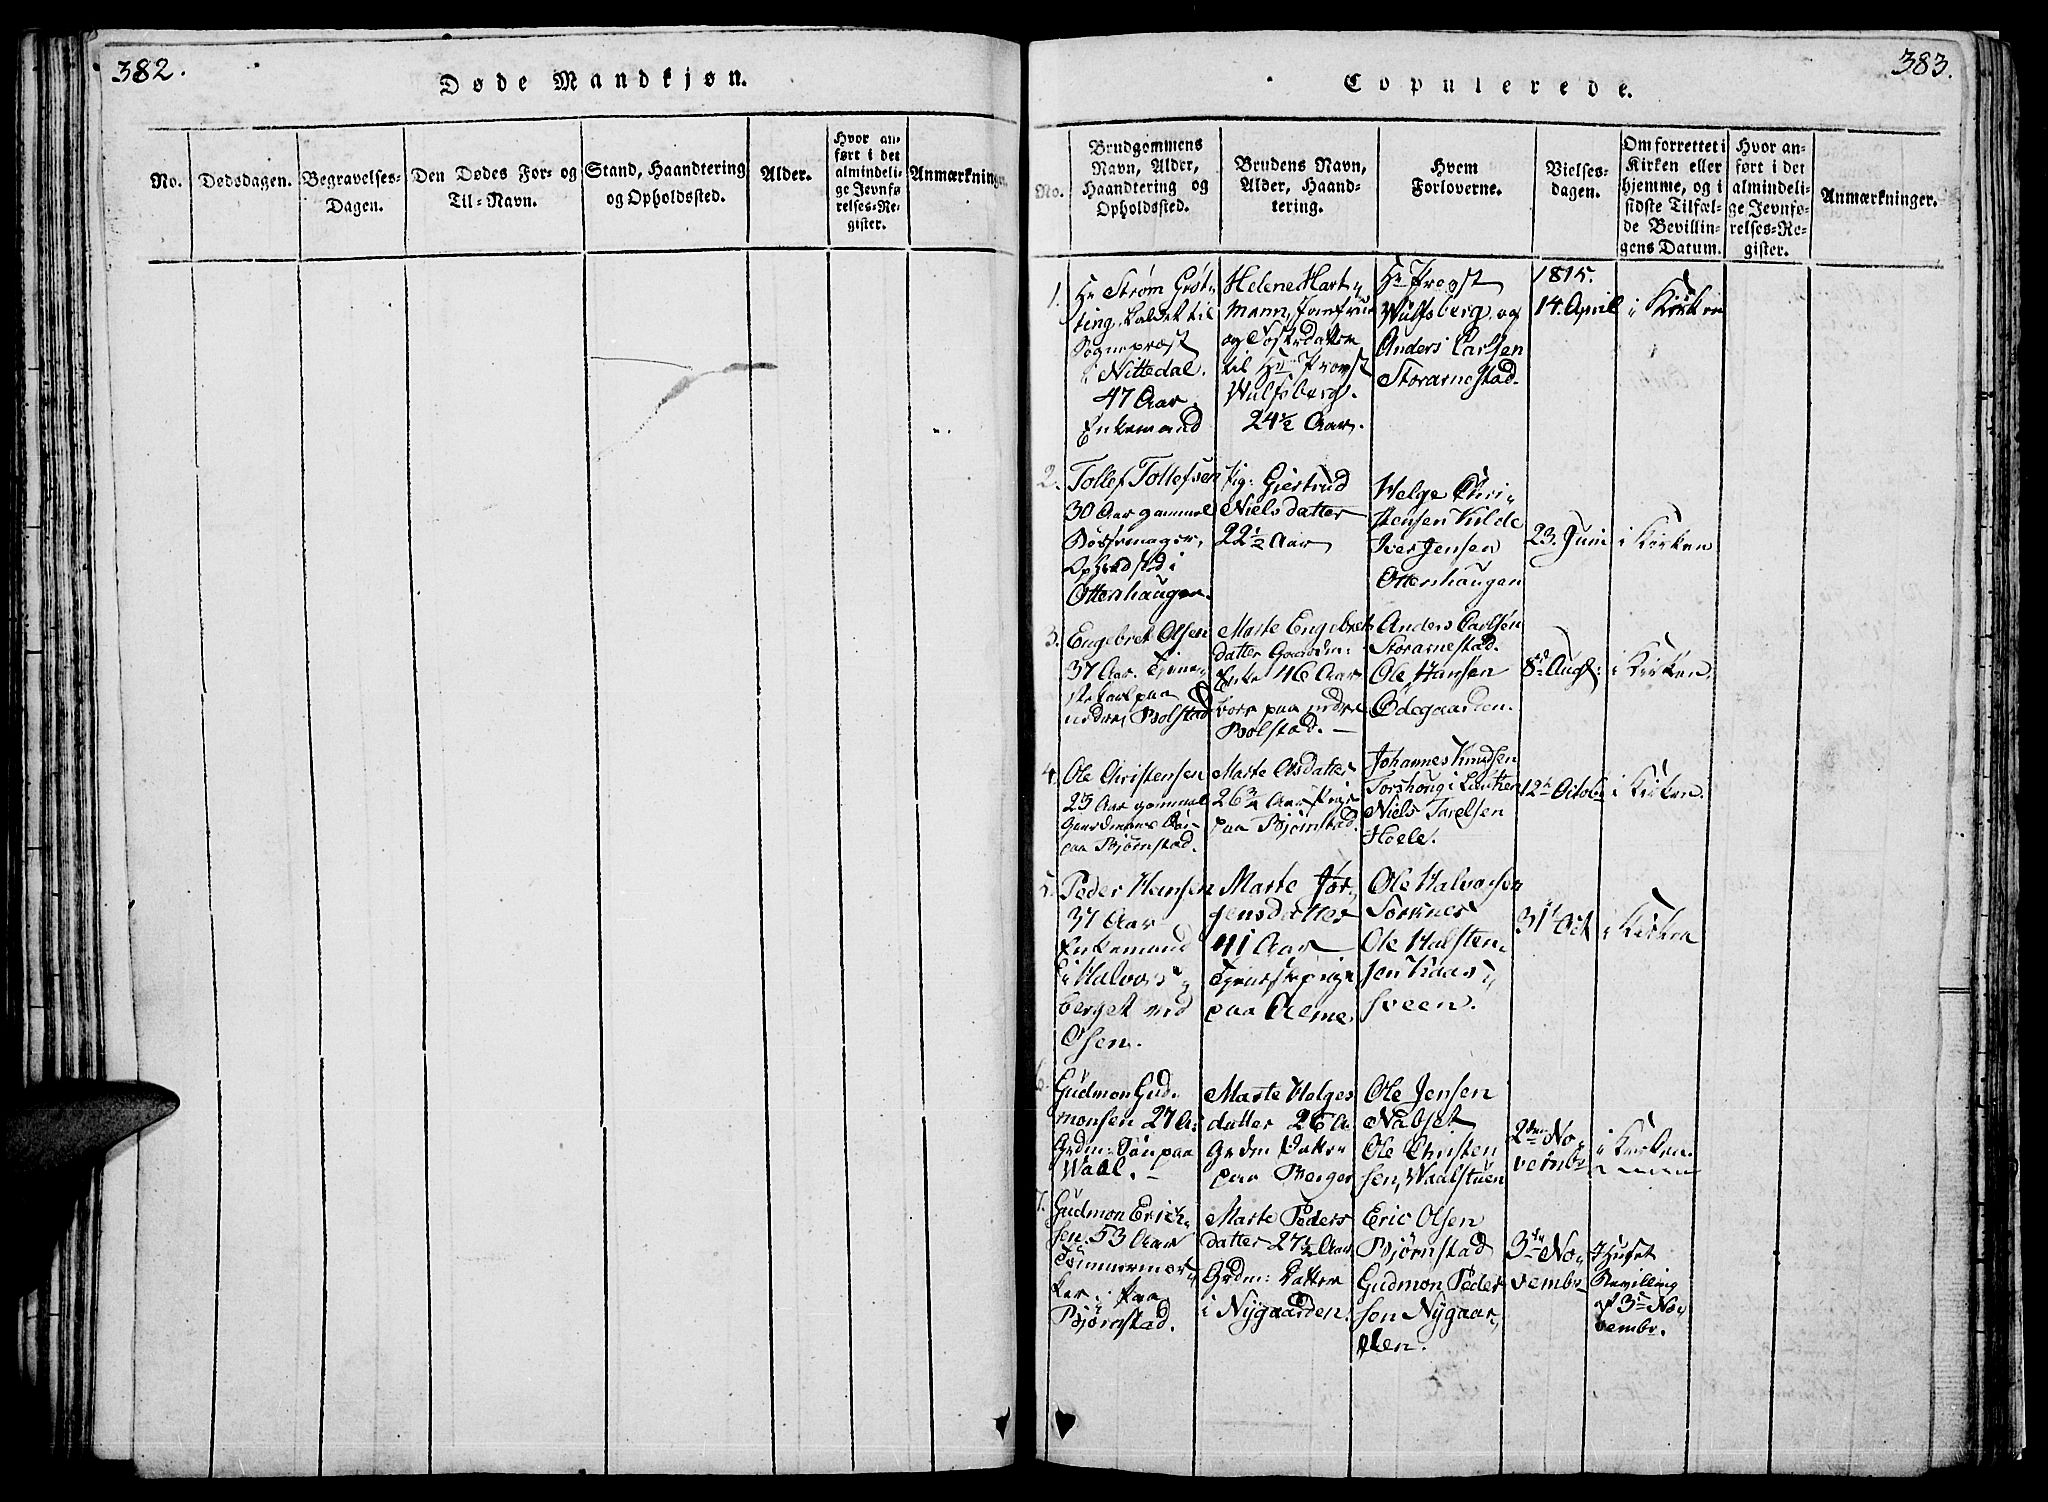 382.
Døde Mandkjøn.
No.
Dødsdagen.
Begravelses-
Dagen.
Den Dødes For- og
Til-Navn.
Stand, Haandtering
og Opholdssted.
Alder.
Hvor an-
ført i det
almindeli-
ge Jevnfø
relses-Re-
gister.
Anmærkninger.
383.
Copulerede.
No.
Brudgommens
Navn, Alder,
Haandtering og
Opholdssted.
Brudens Navn,
Alder, Haand-
tering.
Hvem
Forloverne.
Vielses-
dagen.
Om forrettet i
Kirken eller
hjemme, og i
sidste Tilfæl-
de Bevillin-
gens Datum.
Hvor an-
ført i det
almindeli-
ge Jevnfø-
relses-Re-
gister.
Anmærkninger.
1.
Hr Strøm Grøt-
ting, kaldet til
Sognepræst
i Nittedal.
47 Aar.
Enkemand
Helene Hart-
mann, Jomfrue
og Søsterdatter
til Hr Provst
Wulfsberg.
24½ Aar.
Hr Provst
Wulfsberg og
Anders Carlsen
Storarnestad.
1815.
14. April
i Kirken
2.
Tollef Tollefsen
30 Aar gammel
Bøssemager,
Opholdsted i
Ottershaugen.
Pig: Giertrud
Nielsdatter
22½ Aar
Helge Chri-
stensen Kilde
Iver Jensen
Ottershaugen
23. Juni
i Kirken
3.
Engebret Olsen
37 Aar. Tjene-
stekarl paa
nedre Bolstad
Marte Engebrets
datter Gaardm:
Enke 46 Aar
boer paa nedre
Bolstad. —
Anders Carlsen
Storarnestad.
Ole Hansen
Ødegaarden.
8de Aug:
i Kirken.
4.
Ole Christensen
23 Aar gammel
Gaardmands Søn
paa Bjørnstad.
Marte Olsdatter
26¾ Aar Pige
paa Bjørnstad.
Johannes Knudsen
Torshoug i
Niels Torelsen
Hoele.
12te Octobr
i Kirken.
5.
Peder Hansen
37 Aar
Enkemand
i Halvors-
berget ved
Olsen.
Marte Jør-
gensdatter
41 Aar
Tjenestepige
paa
Ole Halvorsen
Torsnes
Ole Halsten-
sen Kaas-
sveen.
31te Oct
i Kirken
6.
Gudmon Gud-
monsen 27 A:
Grdm: Søn paa
Waal. —
Marte Helges
datter 26 A.
Grdm Datter
paa Berger
Ole Jensen
Nabset
Ole Christen
sen, Waalstuen
2den No-
vembr
i Kirken.
7.
Gudmon Erich-
sen. 53 Aar
Tømmermær-
ker. paa
Bjørnstad.
Marte Peders
datter 27½ Aar
Grdm: Datter
i Nygaarden.
Eric Olsen
Bjørnstad
Gudmon Peder
sen Nygaar-
den.
3de No-
vembr
I Huset
Bevilling
af 3de No-
vembr.